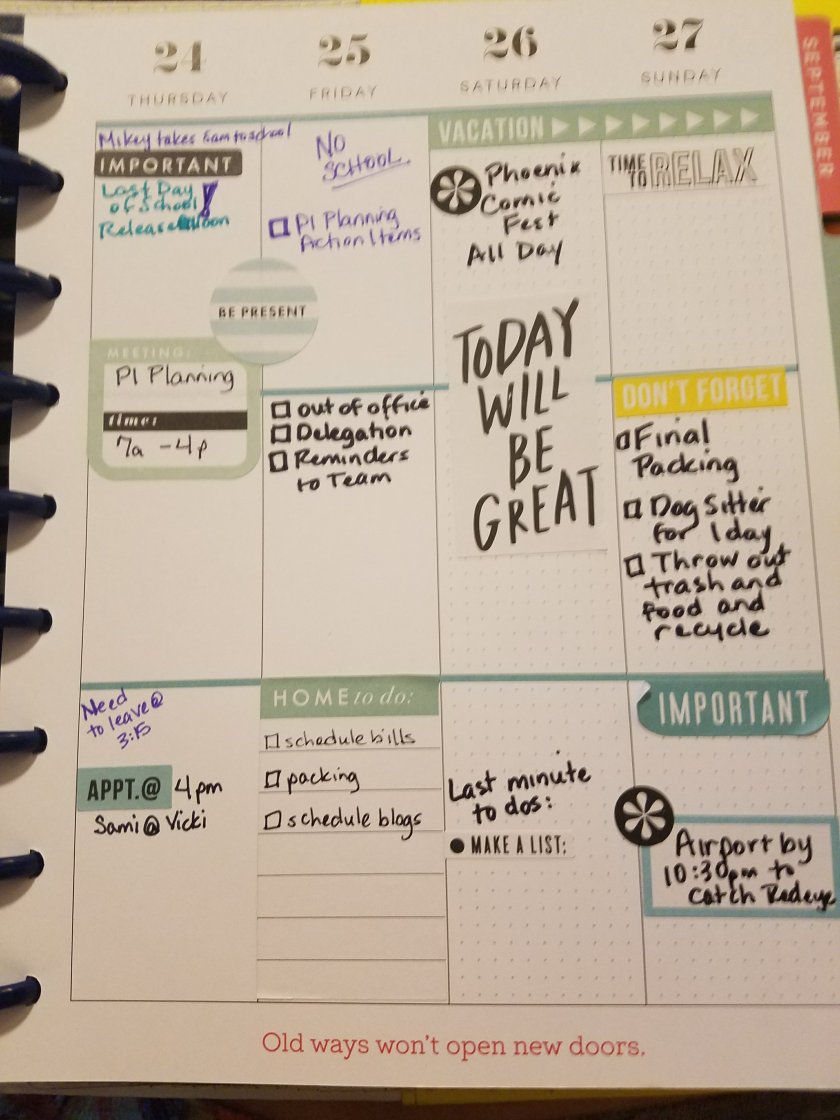 24
THURSDAY
Mikey takes Sam to school
IMPORTANT
Last Day
of School
Release Noon
MEETING:
PI Planning
time:
7a - 4p
Need
to leave @
3:15
APPT.@ 4pm
Sami @ Vicki
25
FRIDAY
NO
SCHOOL.
PI Planning
Action Items
BE PRESENT
out of office
Delegation
Reminders
to Team
HOME to do:
schedule bills
packing
schedule blogs
26
SATURDAY
VACATION
Phoenix
Comic
Fest
All Day
TODAY
WILL
BE
GREAT
Last minute
to dos:
MAKE A LIST:
27
SUNDAY
TIME TO RELAX
DON'T FORGET
Final
Packing
Dog Sitter
for 1 day
Throw out
trash and
food and
recycle
IMPORTANT
Airport by
10:30pm to
catch Redeye
SEPTEMBER
Old ways won't open new doors.